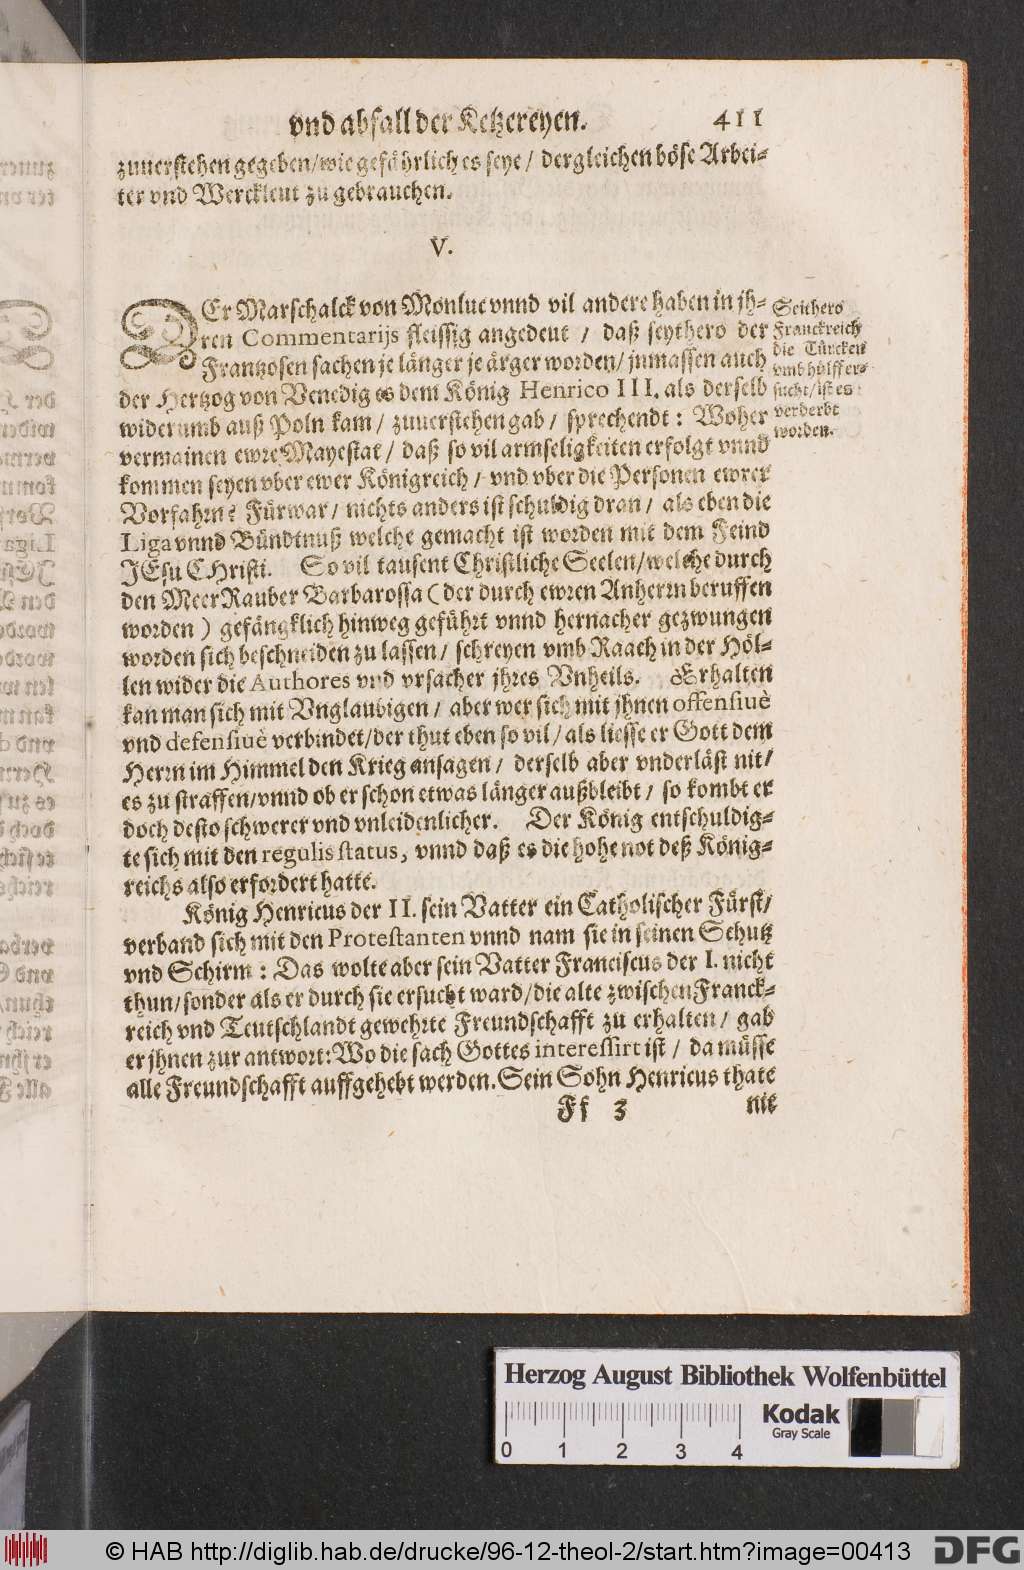 vnd abfall der Ketzereyen. 411
zuuerstehen gegeben/wie gefährlich es seye/ dergleichen böse Arbei-
ter vnd Werckleut zu gebrauchen.
V.
DEr Marschalck von Monluc vnnd vil andere haben in jh-
ren Commentarijs fleissig angedeut / daß seythero der
Frantzosen sachen je länger je ärger worden/ jnmassen auch
der Hertzog von Venedig es dem König Henrico III. als derselb
widerumb auß Poln kam/ zuuerstehen gab/ sprechendt: Woher
vermainen ewre Mayestat/ daß so vil armseligkeiten erfolgt vnnd
kommen seyen vber ewer Königreich/ vnd vber die Personen ewrer
Vorfahrn? Fürwar/ nichts anders ist schuldig dran/ als eben die
Liga vnnd Bündtnuß welche gemacht ist worden mit dem Feind
JEsu CHristi. So vil tausent Christliche Seelen/welche durch
den MeerRauber Barbarossa (der durch ewren Anherrn beruffen
worden) gefängklich hinweg geführt vnnd hernacher gezwungen
worden sich beschneiden zu lassen/ schreyen vmb Raach in der Höl-
len wider die Authores vnd vrsacher jhres Vnheils. Erhalten
kan man sich mit Vnglaubigen/ aber wer sich mit jhnen offensiuè
vnd defensiuè verbindet/der thut eben so vil/ als liesse er Gott dem
Herrn im Himmel den Krieg ansagen/ derselb aber vnderläst nit/
es zu straffen/vnnd ob er schon etwas länger außbleibt/ so kombt er
doch desto schwerer vnd vnleidenlicher. Der König entschuldig-
te sich mit den regulis status, vnnd daß es die hohe not deß König-
reichs also erfordert hatte.
König Henricus der II. sein Vatter ein Catholischer Fürst/
verband sich mit den Protestanten vnnd nam sie in seinen Schutz
vnd Schirm: Das wolte aber sein Vatter Franciscus der I. nicht
thun/sonder als er durch sie ersucht ward/die alte zwischen Franck-
reich vnd Teutschlandt gewehrte Freundschafft zu erhalten/ gab
er jhnen zur antwort: Wo die sach Gottes interessirt ist/ da müsse
alle Freundschafft auffgehebt werden. Sein Sohn Henricus thate
Ff 3 nie
Seithero
Franckreich
die Türcken
vmb hülff er-
sucht/ ist es
verderbt
worden.
Herzog August Bibliothek Wolfenbüttel
0 1 2 3 4
Kodak
Gray Scale
© HAB http://diglib.hab.de/drucke/96-12-theol-2/start.htm?image=00413
DFG